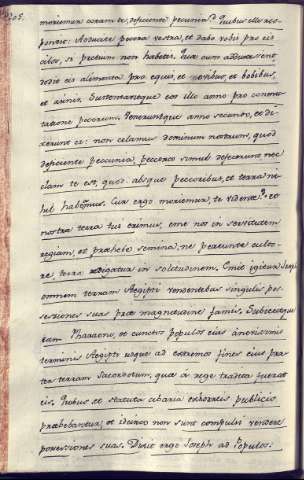 205.
moriemur coram te, deficiente pecunia? Quibus ille res-
pondit: Adducite pecora vestra, et dabo vobis pro eis
cibos, si pretium non habetis. Quæ cum adduxissent
dedit eis alimenta pro equis, et ovibus, et bobus,
et asinis. Sustentavitque eos illo anno pro commu-
tatione pecorum. Veneruntque anno secundo, et di-
xerunt ei: non celamus dominum nostrum, quod
deficiente pecunia, pecora simul defecerunt nec
clam te est, quod absque pecoribus, et terra ni-
hil habemus. Cur ergo moriemur, te vidente? et
nostra terra tui erimus, eme nos in servitutem
regiam, et præbe semina, ne pereunte culto-
re terra redigatur in solitudinem. Emit igitur Joseph
omnem terram Aegipti vendentibus singulis pos-
sesiones suas præ magnitudine famis. Subiecitque
eam Pharaoni, et cunctos populos eius à novissimis
terminis Aegipti usque ad extremos fines eius præ-
ter terram Sacerdotum, quæ à rege tradita fuerat
eis. Quibus et statuta cibaria ex horreis publicis
præbebantur, et idcirco non sunt compulsi vendere
possessiones suas. Dixit ergo Joseph ad Populos.